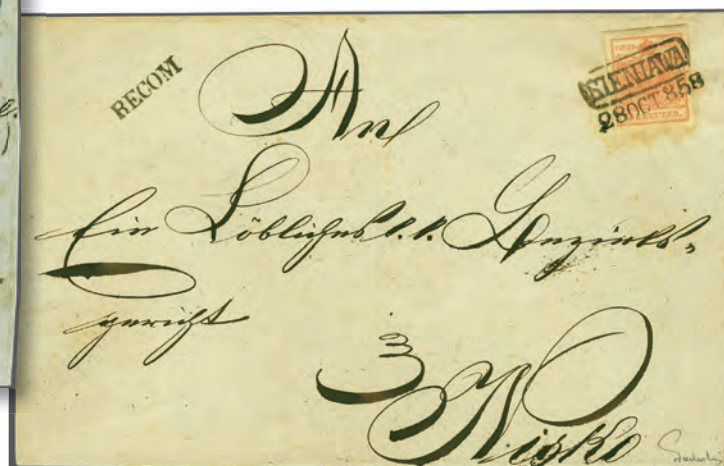 RECOM
SIENIAWA
28 OCT. 858
KREUZER.
An
Ein Löbliches k. k. Bezirks-
gericht
3
Nisko